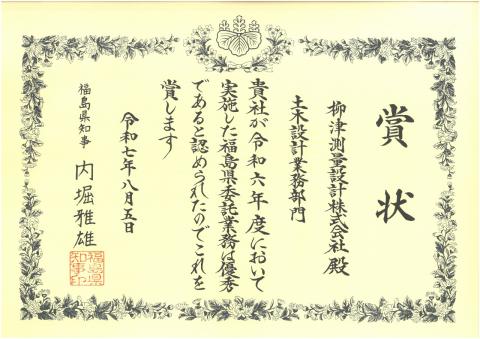 賞状
柳津測量設計株式会社 殿
土木設計業務部門
貴社が令和六年度において
実施した福島県委託業務は優秀
であると認められたのでこれを
賞します
令和七年八月五日
福島県知事 内堀雅雄
福島県
知事印